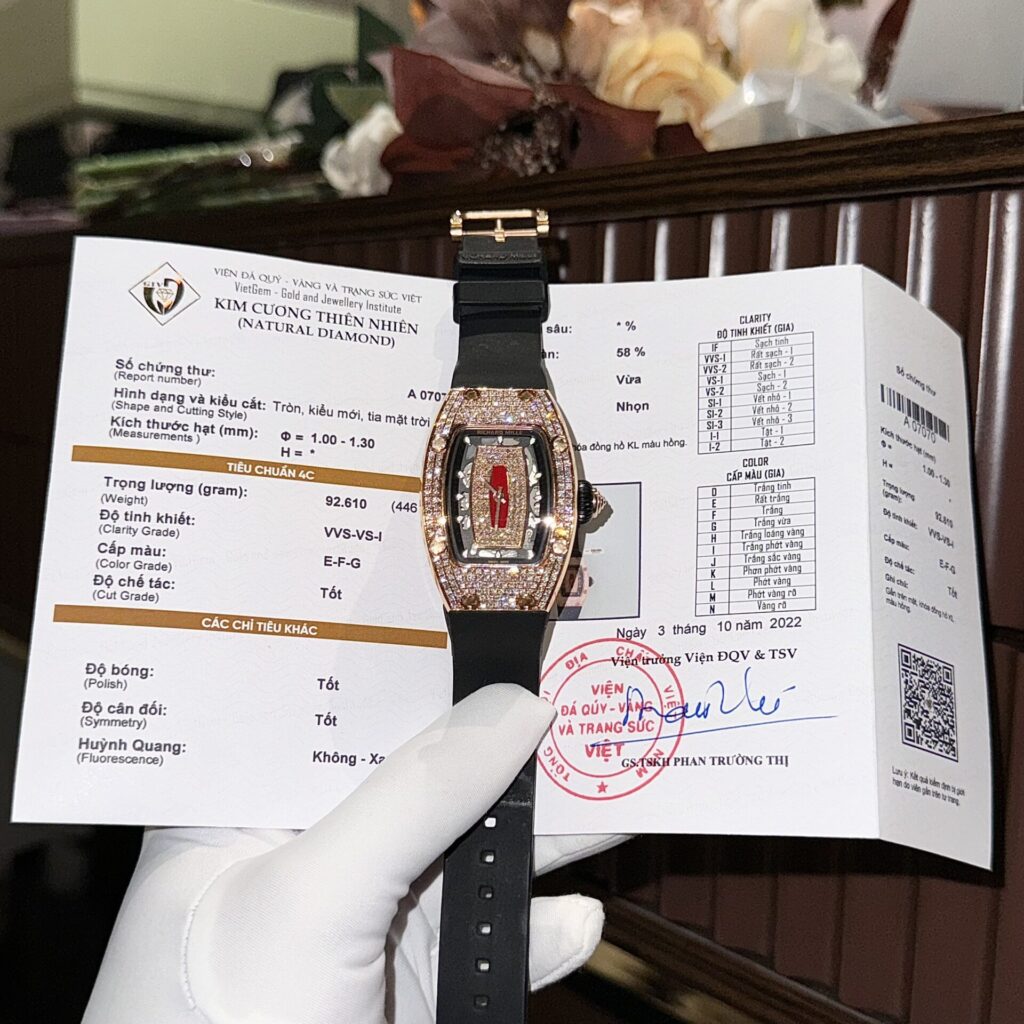 VIỆN ĐÁ QUÝ - VÀNG VÀ TRANG SỨC VIỆT
VietGem - Gold and Jewellery Institute
KIM CƯƠNG THIÊN NHIÊN
(NATURAL DIAMOND)
Số chứng thư:
(Report number)
A 0707
Hình dạng và kiểu cắt: Tròn, kiểu mới, tia mặt trời
(Shape and Cutting Style)
Kích thước hạt (mm): Φ = 1.00 - 1.30
(Measurements) H = *
TIÊU CHUẨN 4C
Trọng lượng (gram): 92.610 (446
(Weight)
Độ tinh khiết: VVS-VS-I
(Clarity Grade)
Cấp màu: E-F-G
(Color Grade)
Độ chế tác: Tốt
(Cut Grade)
CÁC CHỈ TIÊU KHÁC
Độ bóng: Tốt
(Polish)
Độ cân đối: Tốt
(Symmetry)
Huỳnh Quang: Không - Xa
(Fluorescence)
RICHARD MILLE
RICHARD MILLE
sâu: * %
58 %
Vừa
Nhọn
đồng hồ KL màu hồng.
CLARITY
ĐỘ TINH KHIẾT (GIA)
IF Sạch tinh
VVS-1 Rất sạch - 1
VVS-2 Rất sạch - 2
VS-1 Sạch - 1
VS-2 Sạch - 2
SI-1 Vết nhỏ - 1
SI-2 Vết nhỏ - 2
SI-3 Vết nhỏ - 3
I-1 Tạt - 1
I-2 Tạt - 2
COLOR
CẤP MÀU (GIA)
D Trắng tinh
E Rất trắng
F Trắng
G Trắng vừa
H Trắng loáng vàng
I Trắng phớt vàng
J Trắng sắc vàng
K Phơn phớt vàng
L Phớt vàng
M Phớt vàng rõ
N Vàng rõ
Ngày 3 tháng 10 năm 2022
Viện trưởng Viện ĐQV & TSV
VIỆN
ĐÁ QUÝ - VÀNG
VÀ TRANG SỨC
VIỆT
GS.TSKH PHAN TRƯỜNG THỊ
Số chứng thư
A 07070
Kích thước hạt (mm)
Φ = 1.00 - 1.30
H = *
Trọng lượng
(gram): 92.610
Độ tinh khiết: VVS-VS-I
Cấp màu: E-F-G
Độ chế tác: Tốt
Ghi chú:
Gắn trên mặt, khóa đồng hồ KL
màu hồng.
Lưu ý: Kết quả kiểm định bị giới
hạn do viên gắn trên tư trang.